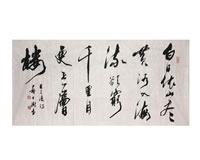 白日依山尽
黄河入海
流欲穷
千里目
更上一层
楼